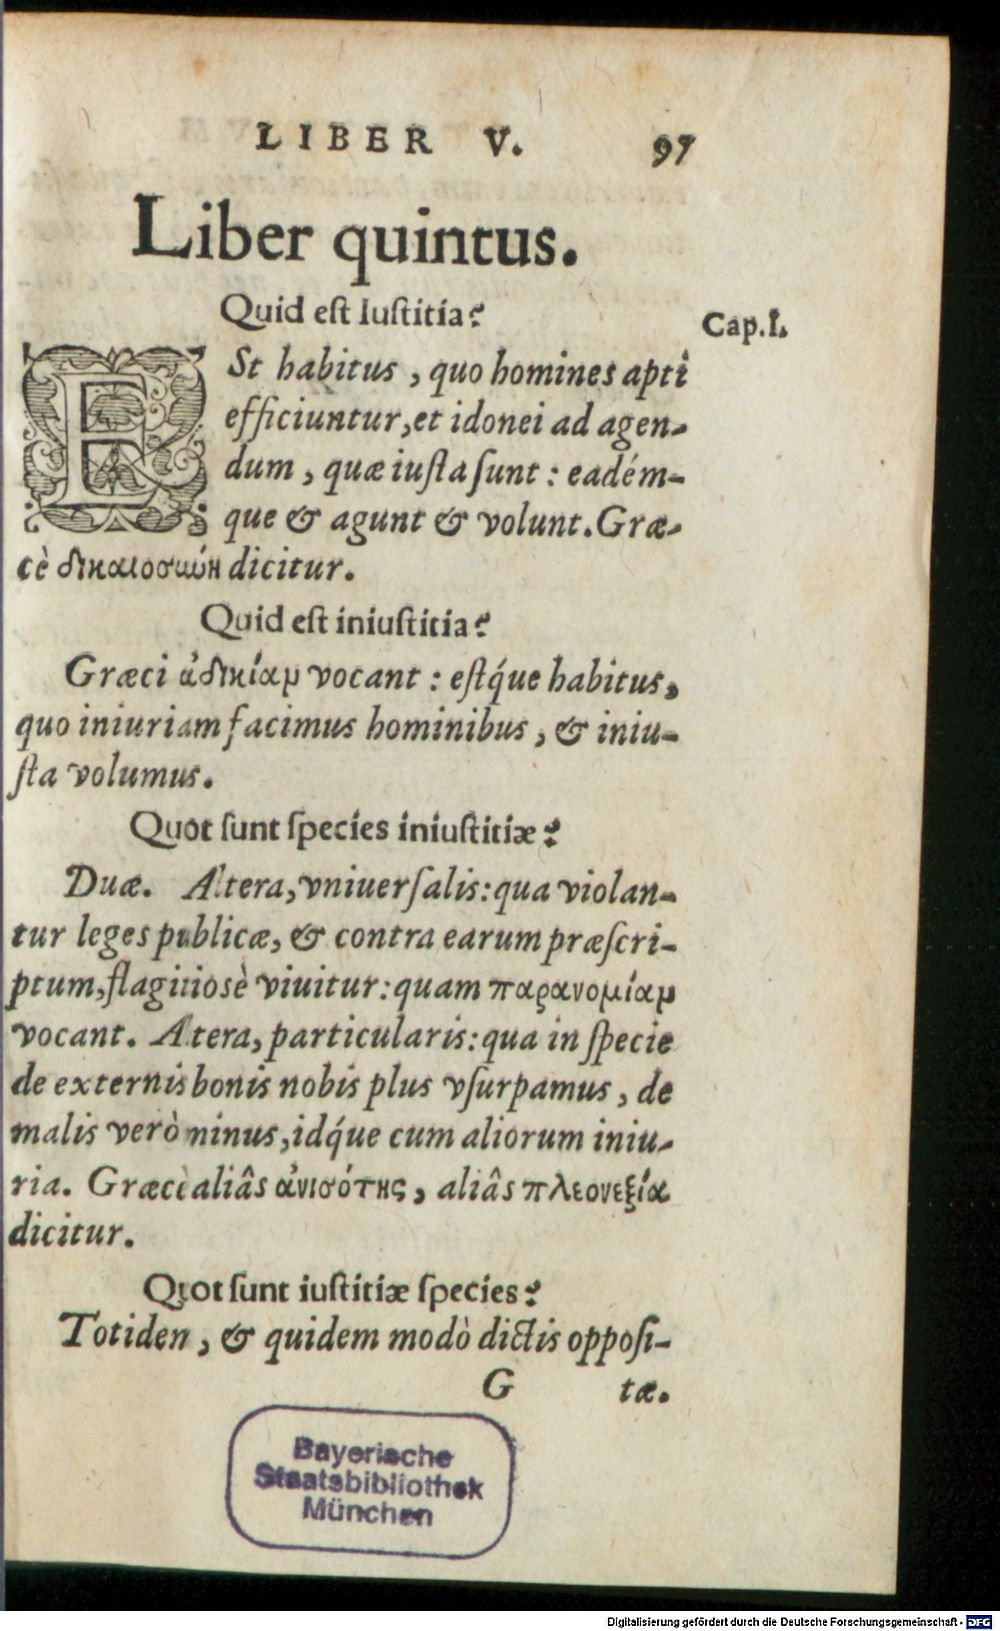 LIBER V. 97
Liber quintus.
Quid est Iustitia?
Cap. I.
ESt habitus, quo homines apti
efficiuntur, et idonei ad agen-
dum, quæ iusta sunt: eadém-
que & agunt & volunt. Græ-
cè δικαιοσύνη dicitur.
Quid est iniustitia?
Græci ἀδικίαμ vocant: estq́ue habitus,
quo iniuriam facimus hominibus, & iniu-
sta volumus.
Quot sunt species iniustitiæ?
Duæ. Altera, vniuersalis: qua violan-
tur leges publicæ, & contra earum præscri-
ptum, flagitiosè viuitur: quam παρανομίαμ
vocant. Altera, particularis: qua in specie
de externis bonis nobis plus vsurpamus, de
malis verò minus, idq́ue cum aliorum iniu-
ria. Græcè aliâs ἀνισότης, aliâs πλεονεξία
dicitur.
Quot sunt iustitiæ species?
Totiden, & quidem modò dictis opposi-
G tæ.
Bayerische
Staatsbibliothek
München
Digitalisierung gefördert durch die Deutsche Forschungsgemeinschaft - DFG